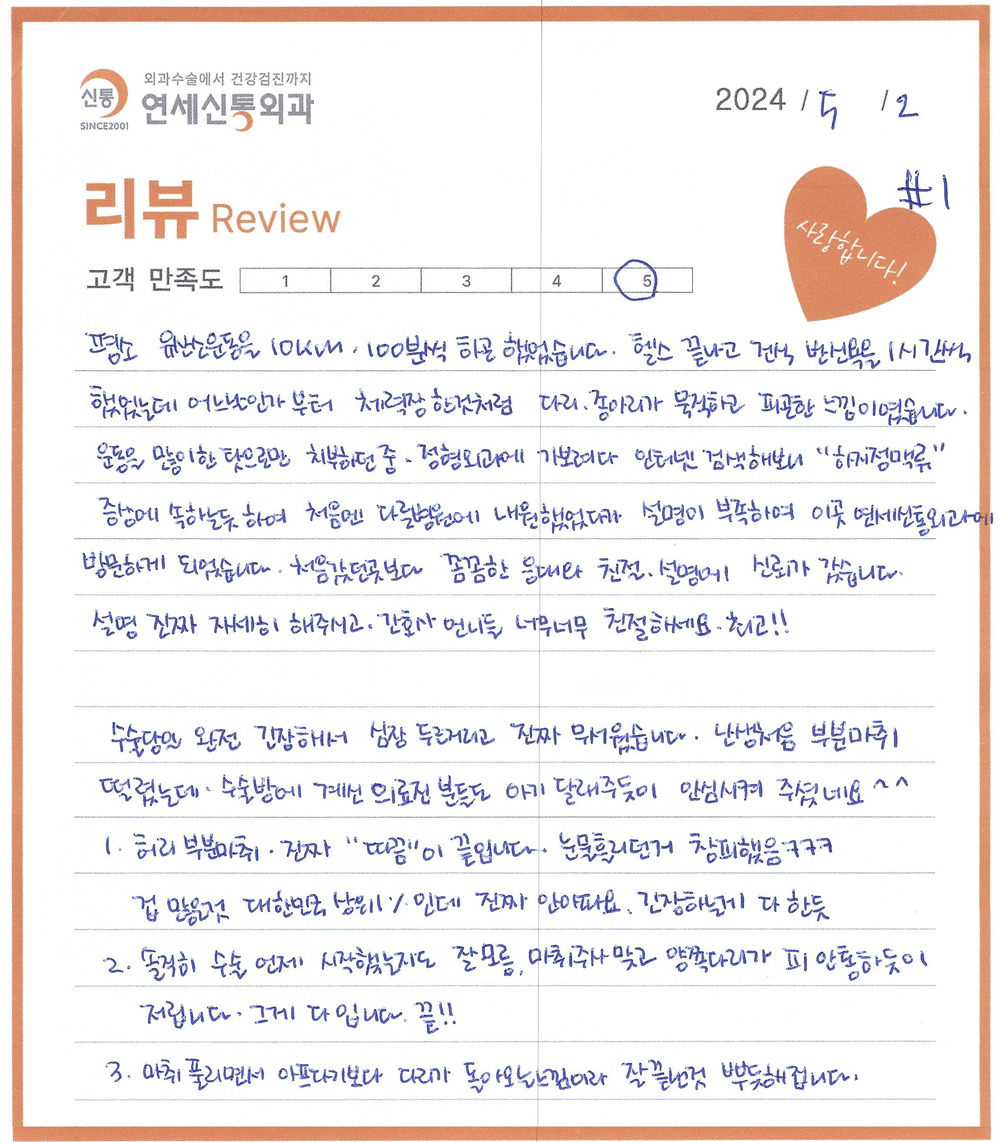 외과수술에서 건강검진까지
신통 연세신통외과
SINCE2001
2024 / 5 / 2
#1
리뷰 Review
사랑합니다!
고객 만족도 1 2 3 4 5
평소 유산소운동을 10KM. 100분씩 하곤 했었습니다. 헬스 끝나고 건식 반신욕을 1시간씩
했었는데 어느날인가부터 체력장 한것처럼 다리. 종아리가 묵직하고 피곤한 느낌이였습니다.
운동을 많이한 탓으로만 치부하던 중. 정형외과에 가보려다 인터넷 검색해보니 "하지정맥류"
증상에 속하는듯 하여 처음엔 다른병원에 내원했었다가 설명이 부족하여 이곳 연세신통외과에
방문하게 되었습니다. 처음갔던곳보다 꼼꼼한 응대와 친절. 설명에 신뢰가 갔습니다.
설명 진짜 자세히 해주시고. 간호사 언니들 너무너무 친절하세요. 최고!!
수술당일 완전 긴장해서 심장 두르거리고 진짜 무서웠습니다. 난생처음 부분마취
떨렸는데. 수술방에 계신 의료진 분들도 아기 달래주듯이 안심시켜 주셨네요 ^^
1. 허리 부분마취. 진짜 "따끔"이 끝입니다. 눈물흘리던거 창피했음ㅋㅋㅋ
겁 많은것 대한민국 상위1%인데 진짜 안아파요. 긴장하는게 다 한듯
2. 솔직히 수술 언제 시작했는지도 잘모름, 마취주사 맞고 양쪽다리가 피 안통하듯이
저립니다. 그게 다 입니다. 끝!!
3. 마취 풀리면서 아프다기보다 다리가 돌아오는느낌이라 잘끝난것 뿌듯해집니다.